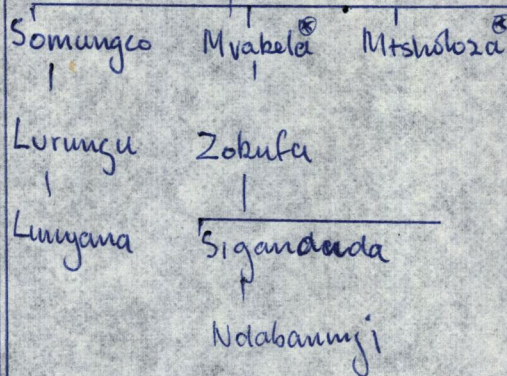 Somungco Mvabela Mtsholoza
Lurungu Zobufa
Lunyana Siganduda
Ndabaningi